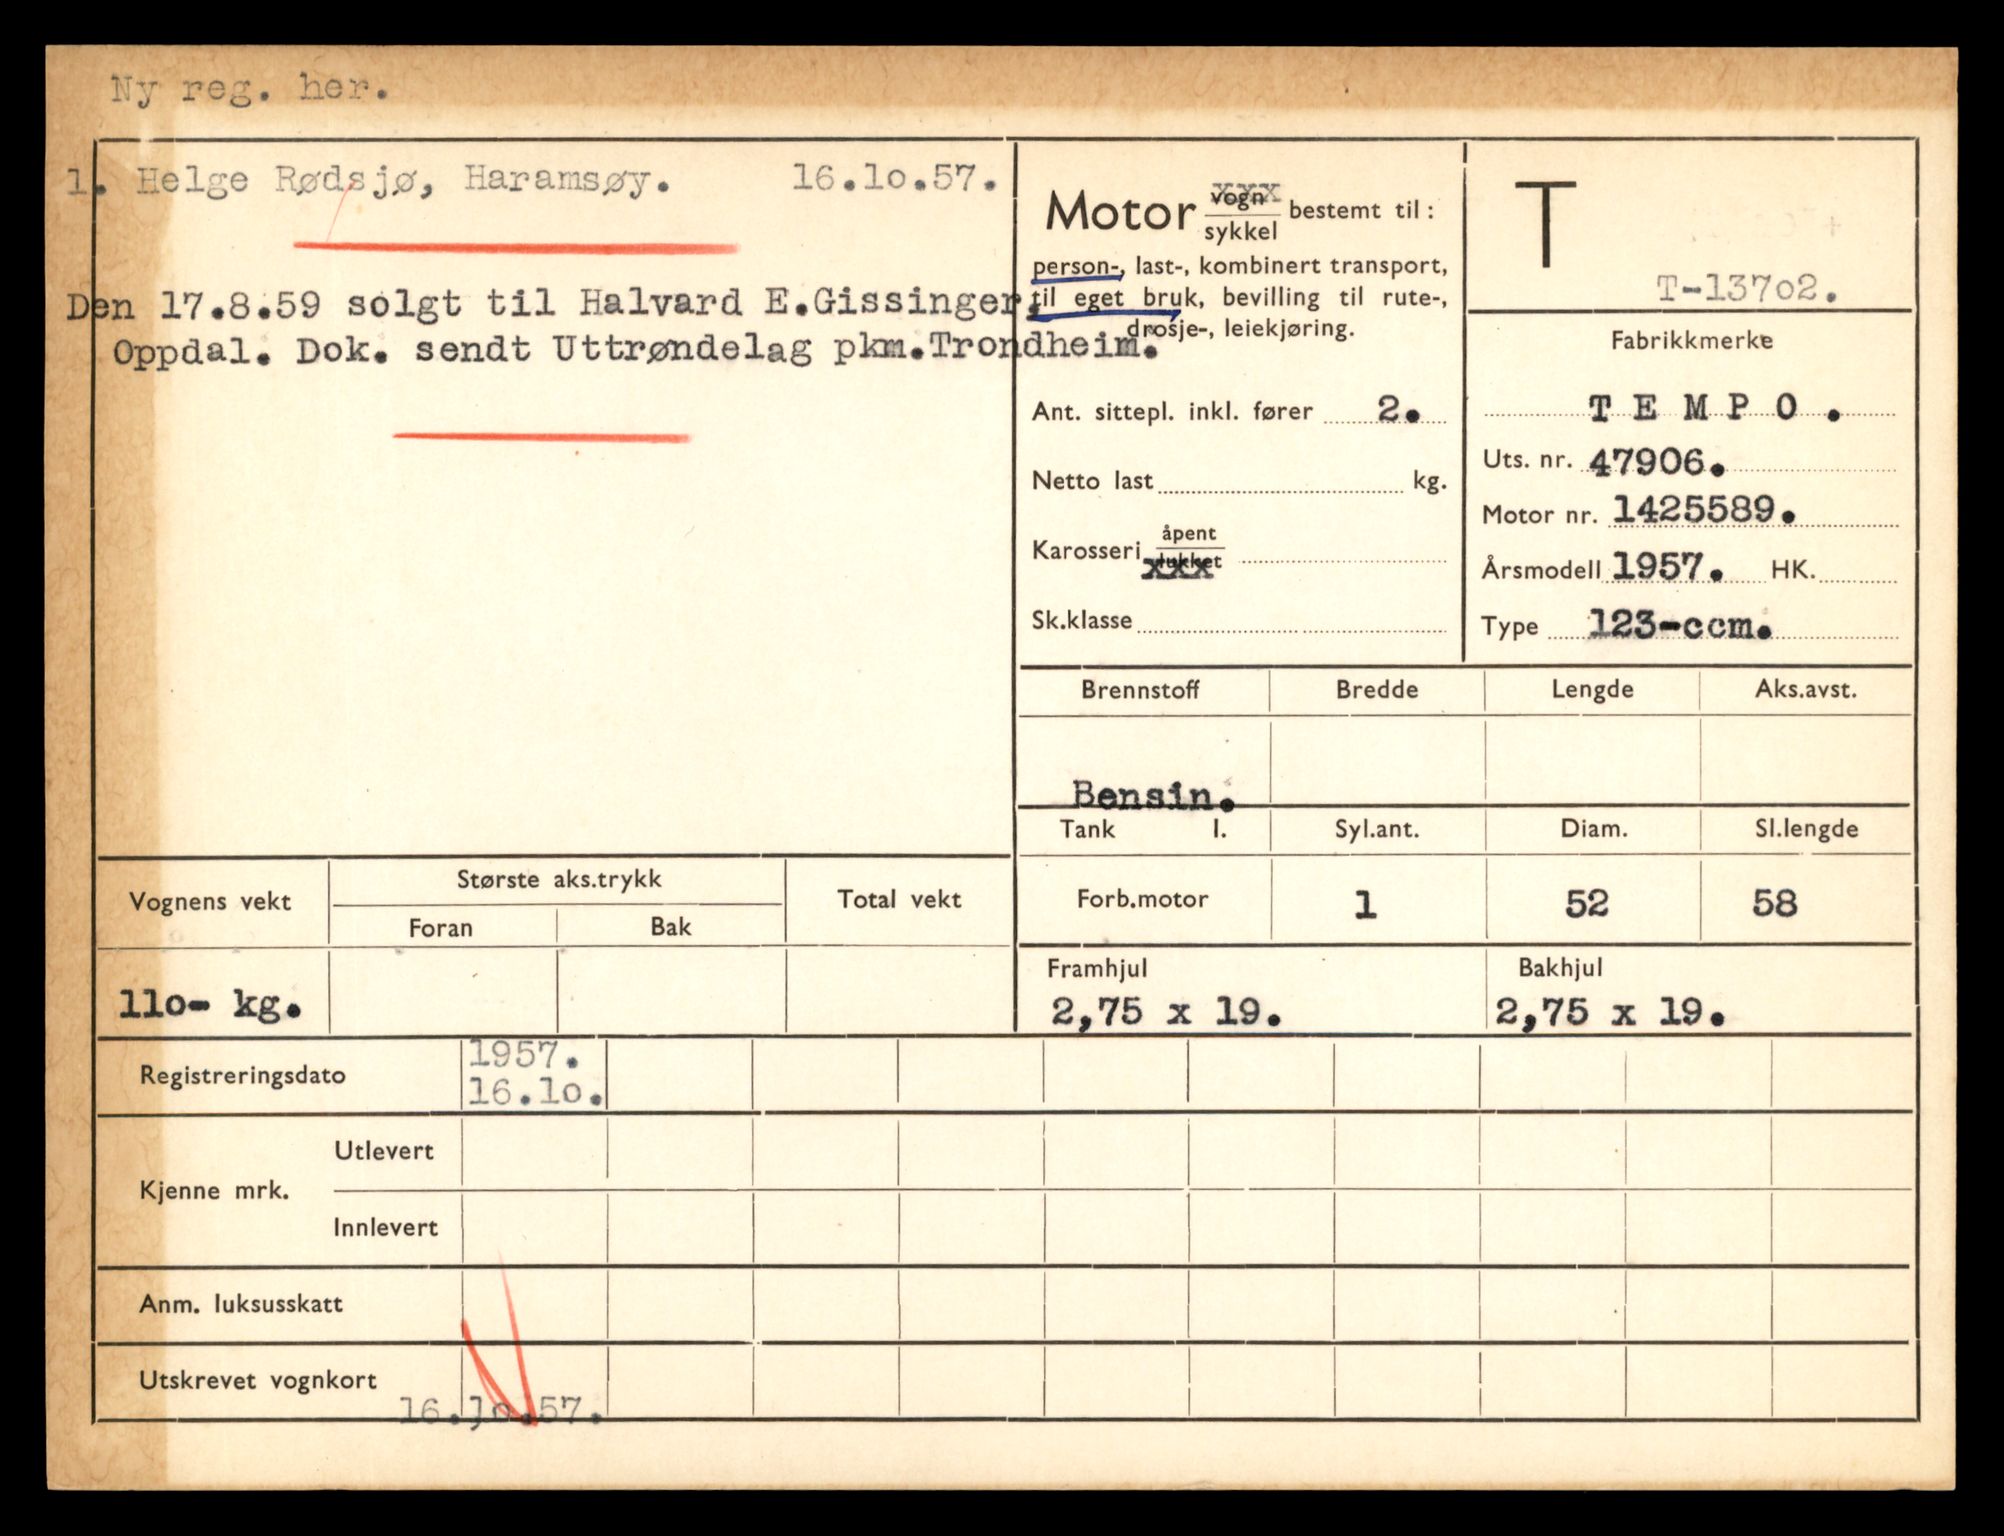 Ny reg. her.
1. Helge Rødsjø, Haramsøy. 16.lo.57.
Den 17.8.59 solgt til Halvard E.Gissinger,
Oppdal. Dok. sendt Uttrøndelag pkm.Trondheim.
Motor vogn xxx / sykkel bestemt til:
person-, last-, kombinert transport,
til eget bruk, bevilling til rute-,
drosje-, leiekjøring.
Ant. sittepl. inkl. fører 2.
Netto last kg.
Karosseri åpent / lukket xxx
Sk.klasse
T
T-137o2.
Fabrikkmerke
T E M P O .
Uts. nr. 47906.
Motor nr. 1425589.
Årsmodell 1957. HK.
Type 123-ccm.
Brennstoff Bredde Lengde Aks.avst.
Bensin.
Tank l. Syl.ant. Diam. Sl.lengde
Forb.motor 1 52 58
Framhjul Bakhjul
2,75 x 19. 2,75 x 19.
Vognens vekt Største aks.trykk Total vekt
Foran Bak
llo- kg.
Registreringsdato 1957.
16.lo.
Kjenne mrk. Utlevert
Innlevert
Anm. luksusskatt
Utskrevet vognkort
16.lo.57.